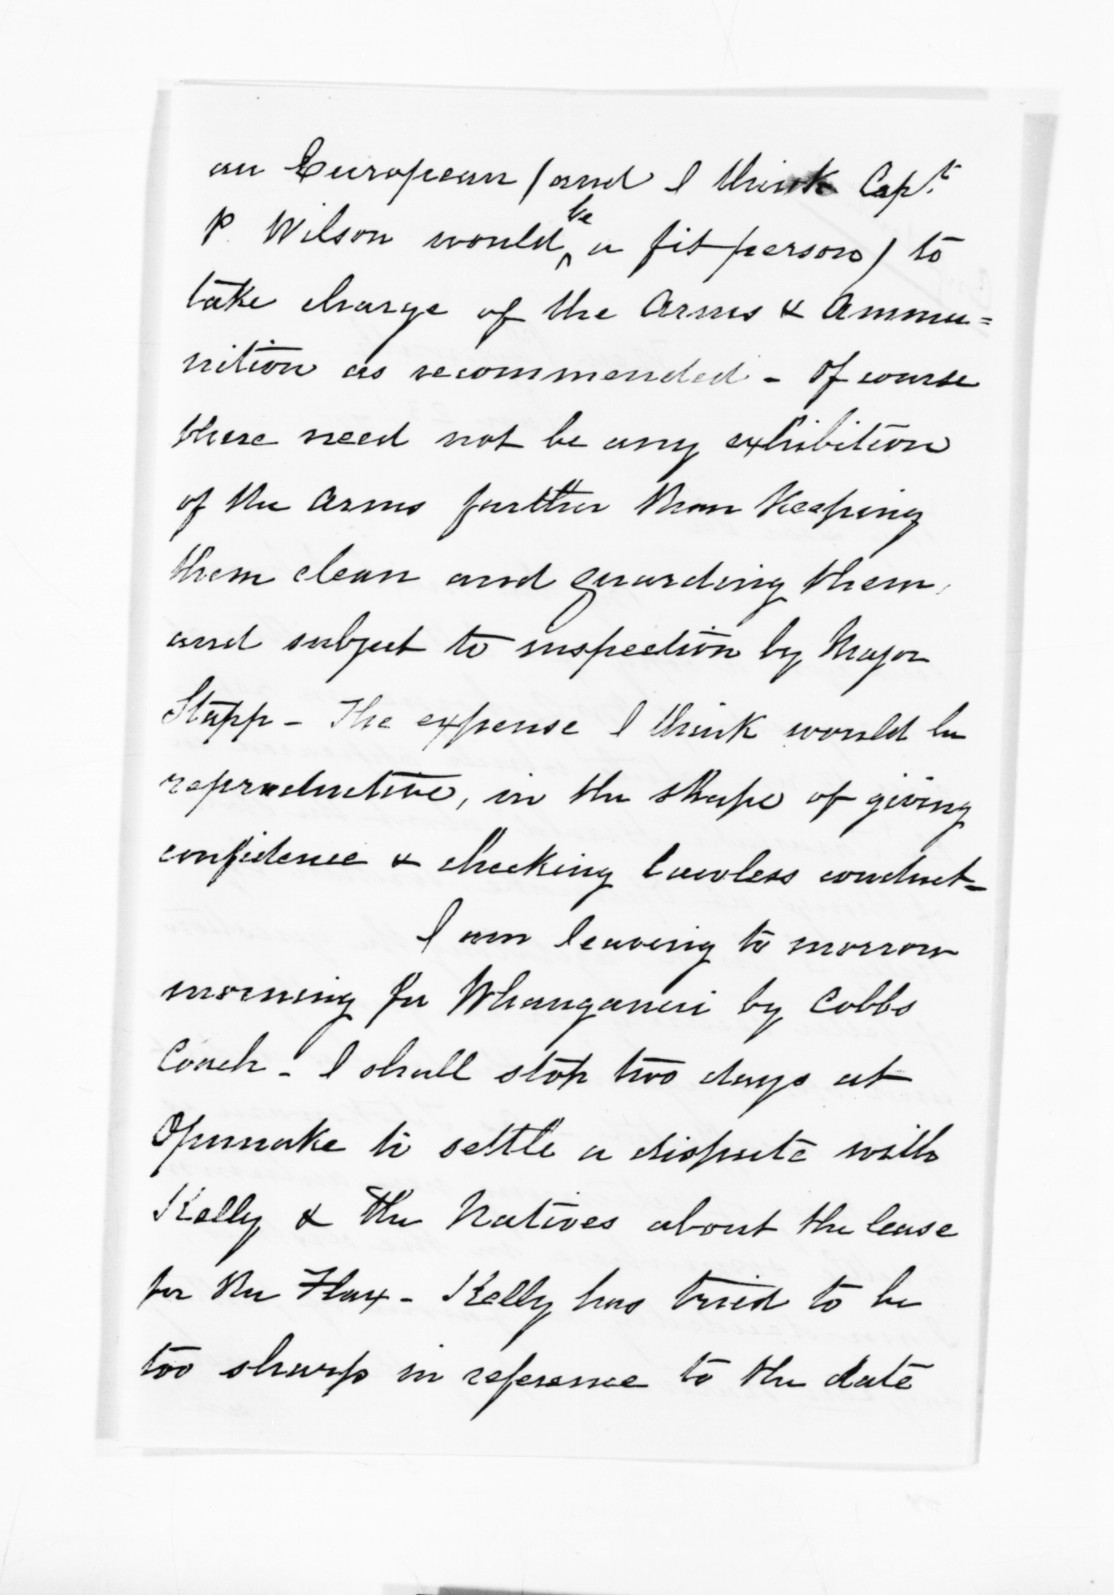 an European (and I think Capt.
P. Wilson would be a fit person) to
take charge of the Arms & Ammu=
nition as recommended - Of course
there need not be any exhibition
of the Arms further than Keeping
them clean and guarding them,
and subject to inspection by Major
Stapp - The expense I think would be
reproductive, in the shape of giving
confidence & checking lawless conduct -
I am leaving to morrow
morning for Whanganui by Cobbs
Coach - I shall stop two days at
Opunake to settle a dispute with
Kelly & the Natives about the lease
for the Flax - Kelly has tried to be
too sharp in reference to the date